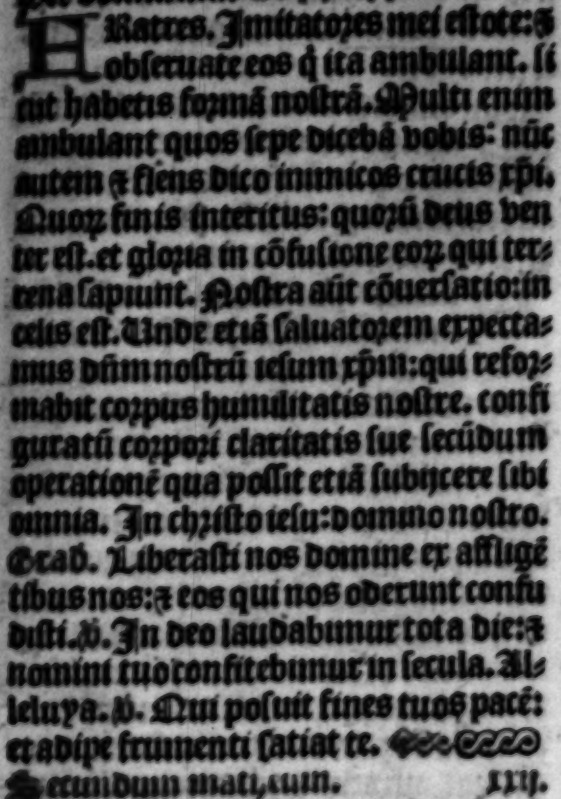 FRatres. Imitatores mei estote: ⁊
obseruate eos q̇ ita ambulant. si
cut habetis formā nostrā. Multi enim
ambulant quos sepe dicebā vobis: nūc
autem ⁊ flens dico inimicos crucis xp̄i.
Quoꝝ finis interitus: quorū deus ven
ter est. et gloria in cōfusione eoꝝ qui ter⸗
rena sapiunt. Nostra aūt cōuersatio: in
celis est. Unde etiā saluatorem expecta⸗
mus dn̄m nostrū iesum xp̄m: qui refor⸗
mabit corpus humilitatis nostre. confi
guratū corpori claritatis sue secūdum
operationē qua possit etiā subijcere sibi
omnia. In christo iesu: domino nostro.
Grad. Liberasti nos domine ex affligē
tibus nos: ⁊ eos qui nos oderunt confu
disti. ℣. In deo laudabimur tota die: ⁊
nomini tuo confitebimur in secula. Al⸗
leluya. ℣. Qui posuit fines tuos pacē:
et adipe frumenti satiat te.
Secundum mat, xxij.